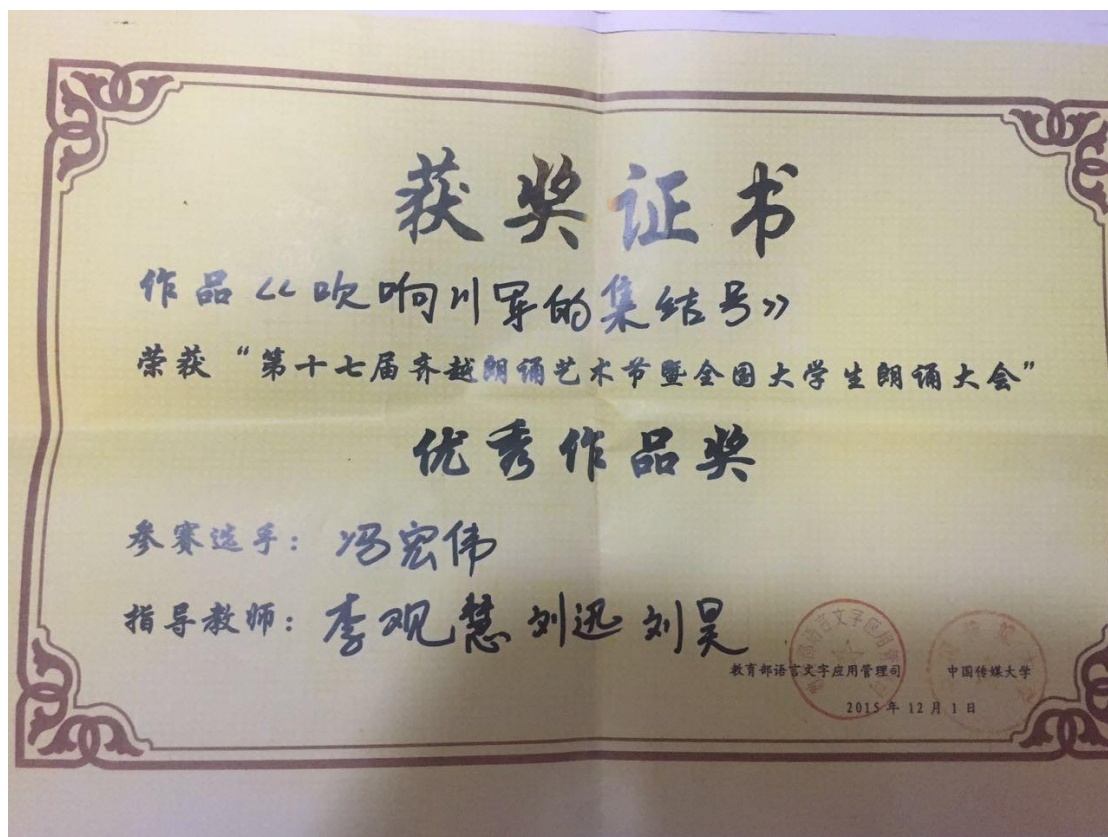 获奖证书
作品《吹响川军的集结号》
荣获“第十七届齐越朗诵艺术节暨全国大学生朗诵大会”
优秀作品奖
参赛选手：冯宏伟
指导教师：李观慧 刘迅 刘昊
教育部语言文字应用管理司 中国传媒大学
2015年12月1日